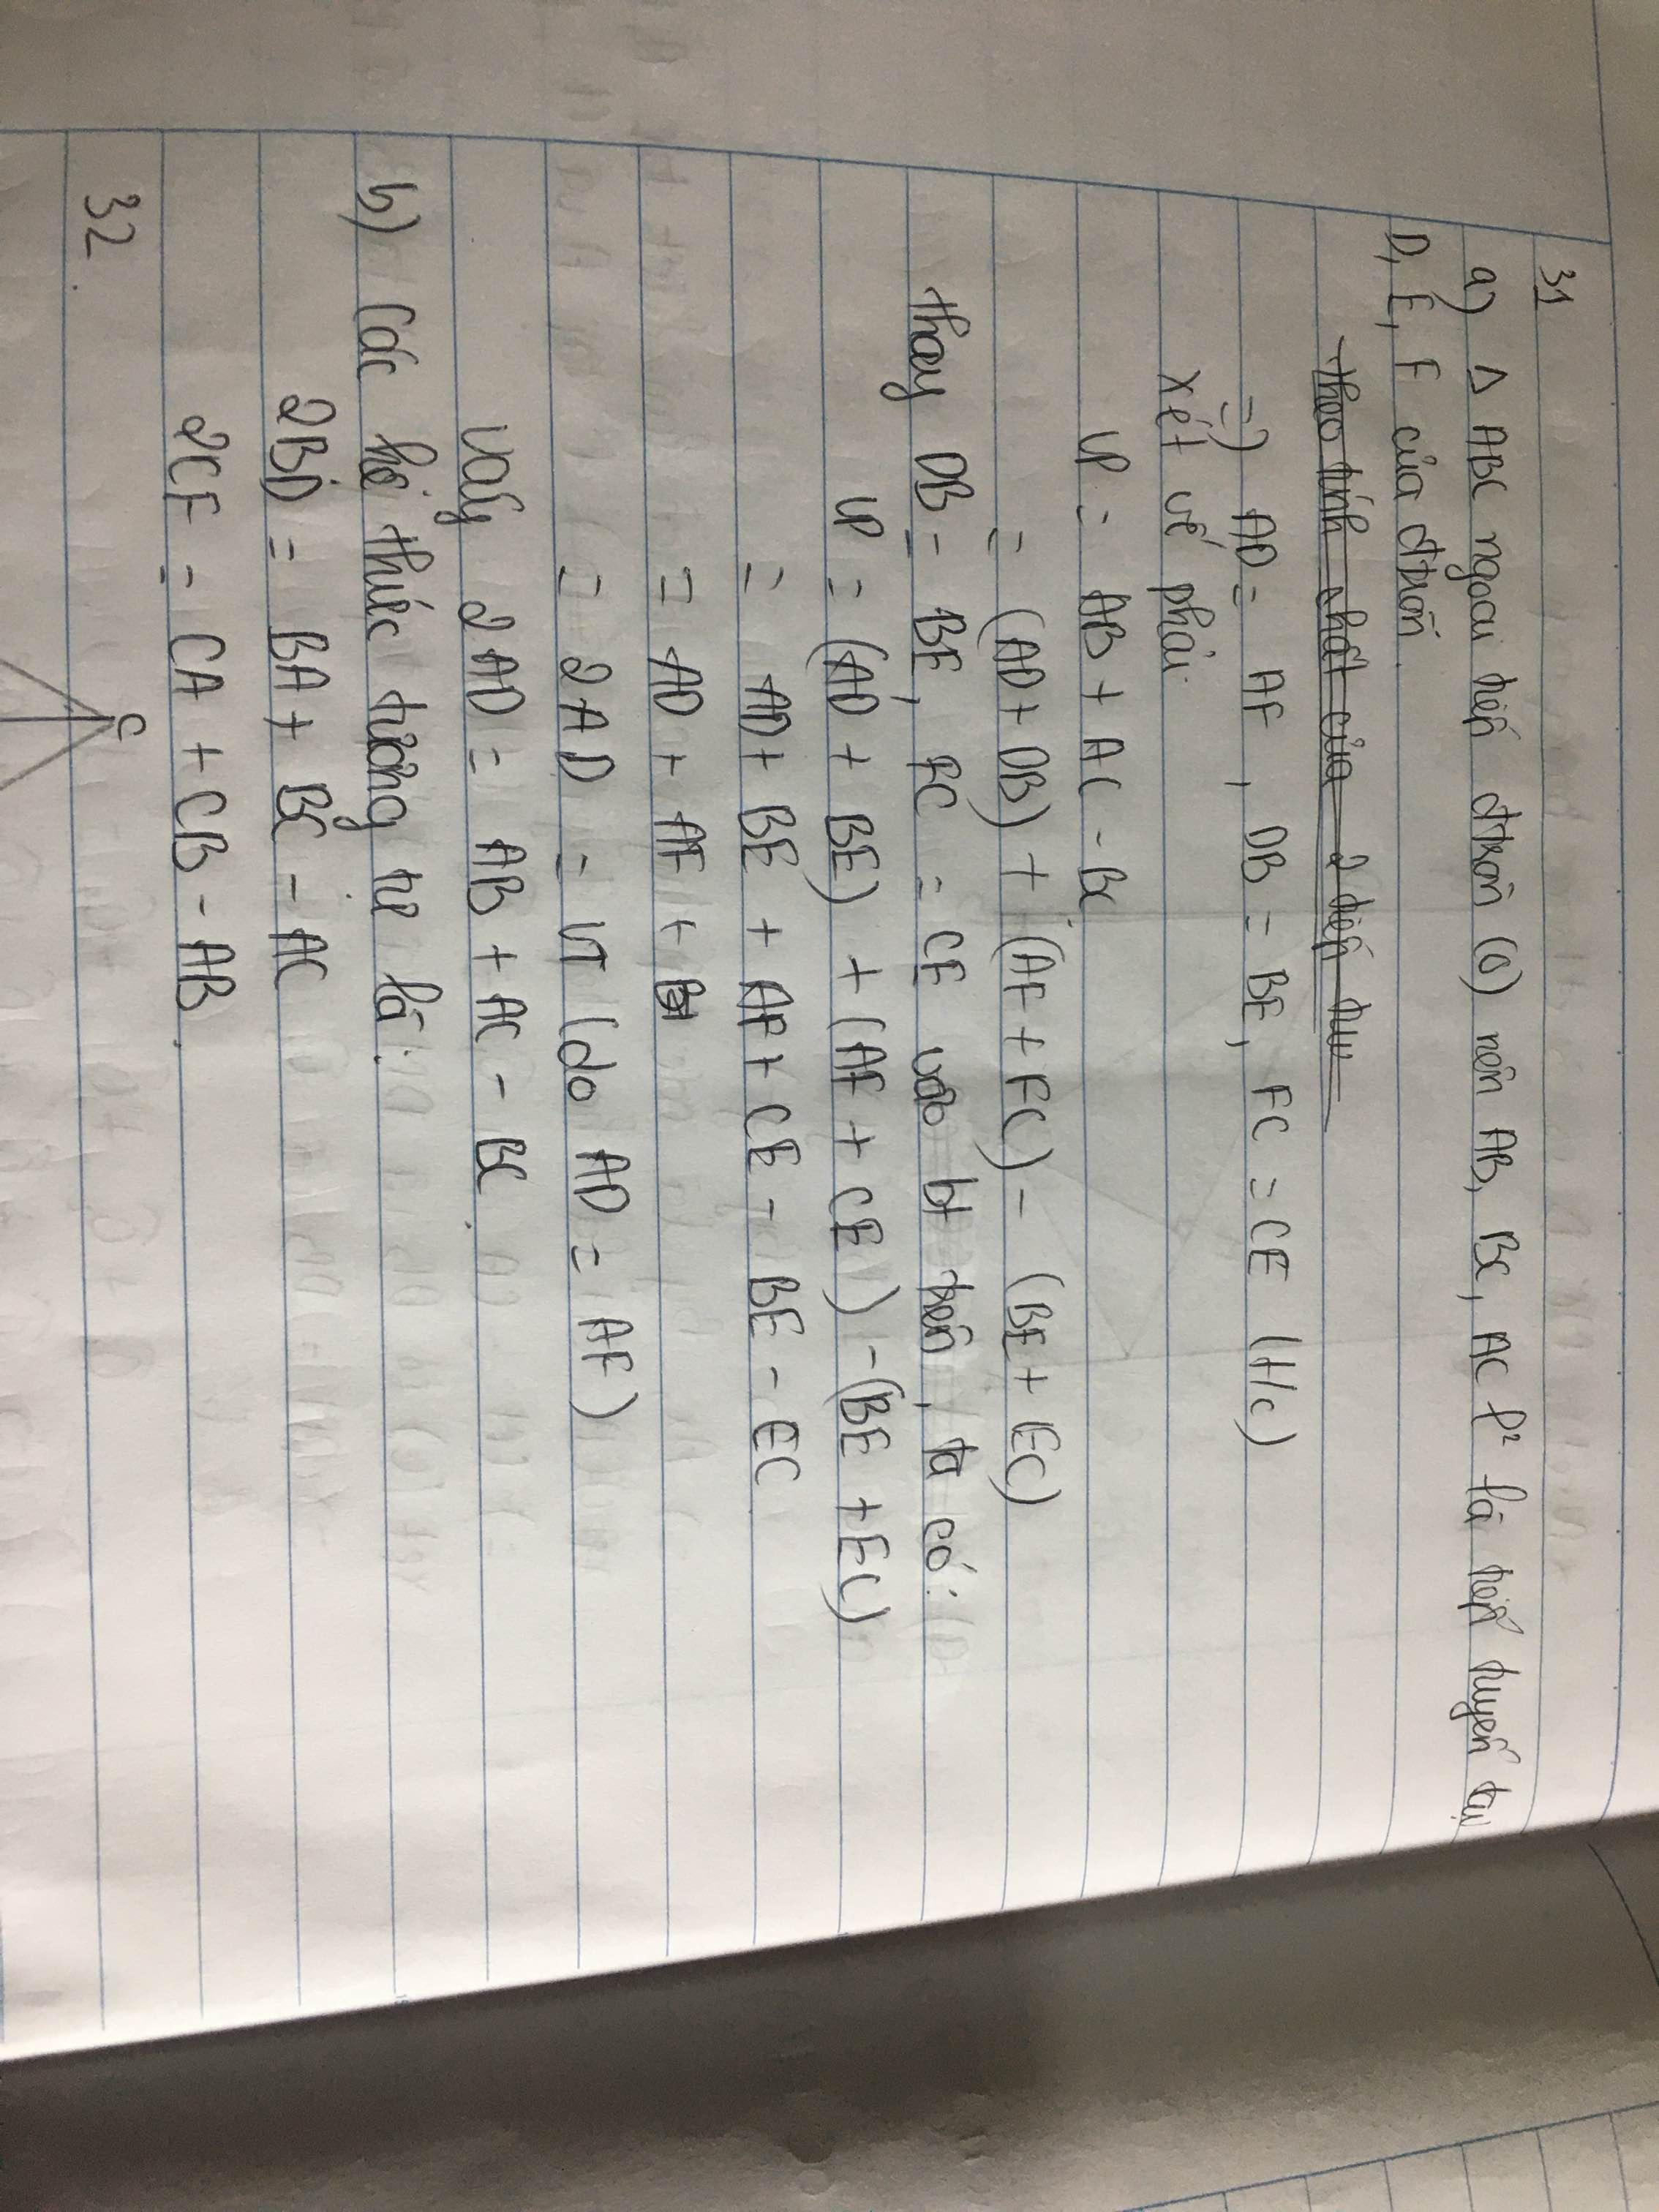 31
a) Δ ABC ngoại tiếp đtròn (O) nên AB, BC, AC lần lượt là tiếp tuyến tại
D, E, F của đtròn.
theo tính chất của 2 tiếp tuy
=) AD = AF, DB = BE, FC = CE (t/c)
xét vế phải
VP = AB + AC - BC
= (AD + DB) + (AF + FC) - (BE + EC)
thay DB = BE, FC = CE vào bt trên, ta có:
VP = (AD + BE) + (AF + CE) - (BE + EC)
= AD + BE + AF + CE - BE - EC
= AD + AF +
= 2AD = VT (do AD = AF)
vậy 2AD = AB + AC - BC.
b) Các hệ thức tương tự là:
2BD = BA + BC - AC
2CF = CA + CB - AB.
32.
C